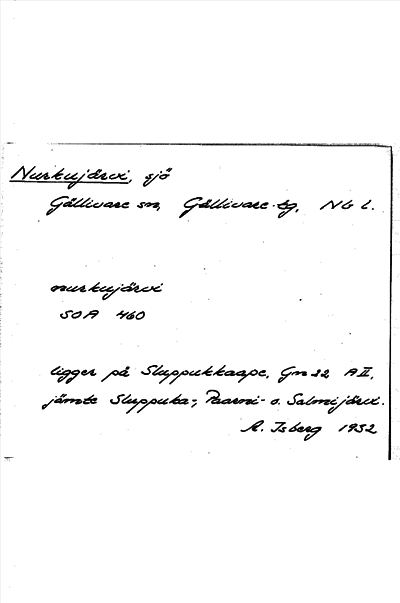 Nurkujärvi, sjö
Gällivare sn, Gällivare tg, Nb l.
nurkujärvi
SOA 460
ligger på Sluppukkaape, Gm 22 AII,
jämte Sluppuka-, Paarni- o. Salmijärvi.
A. Isberg 1932